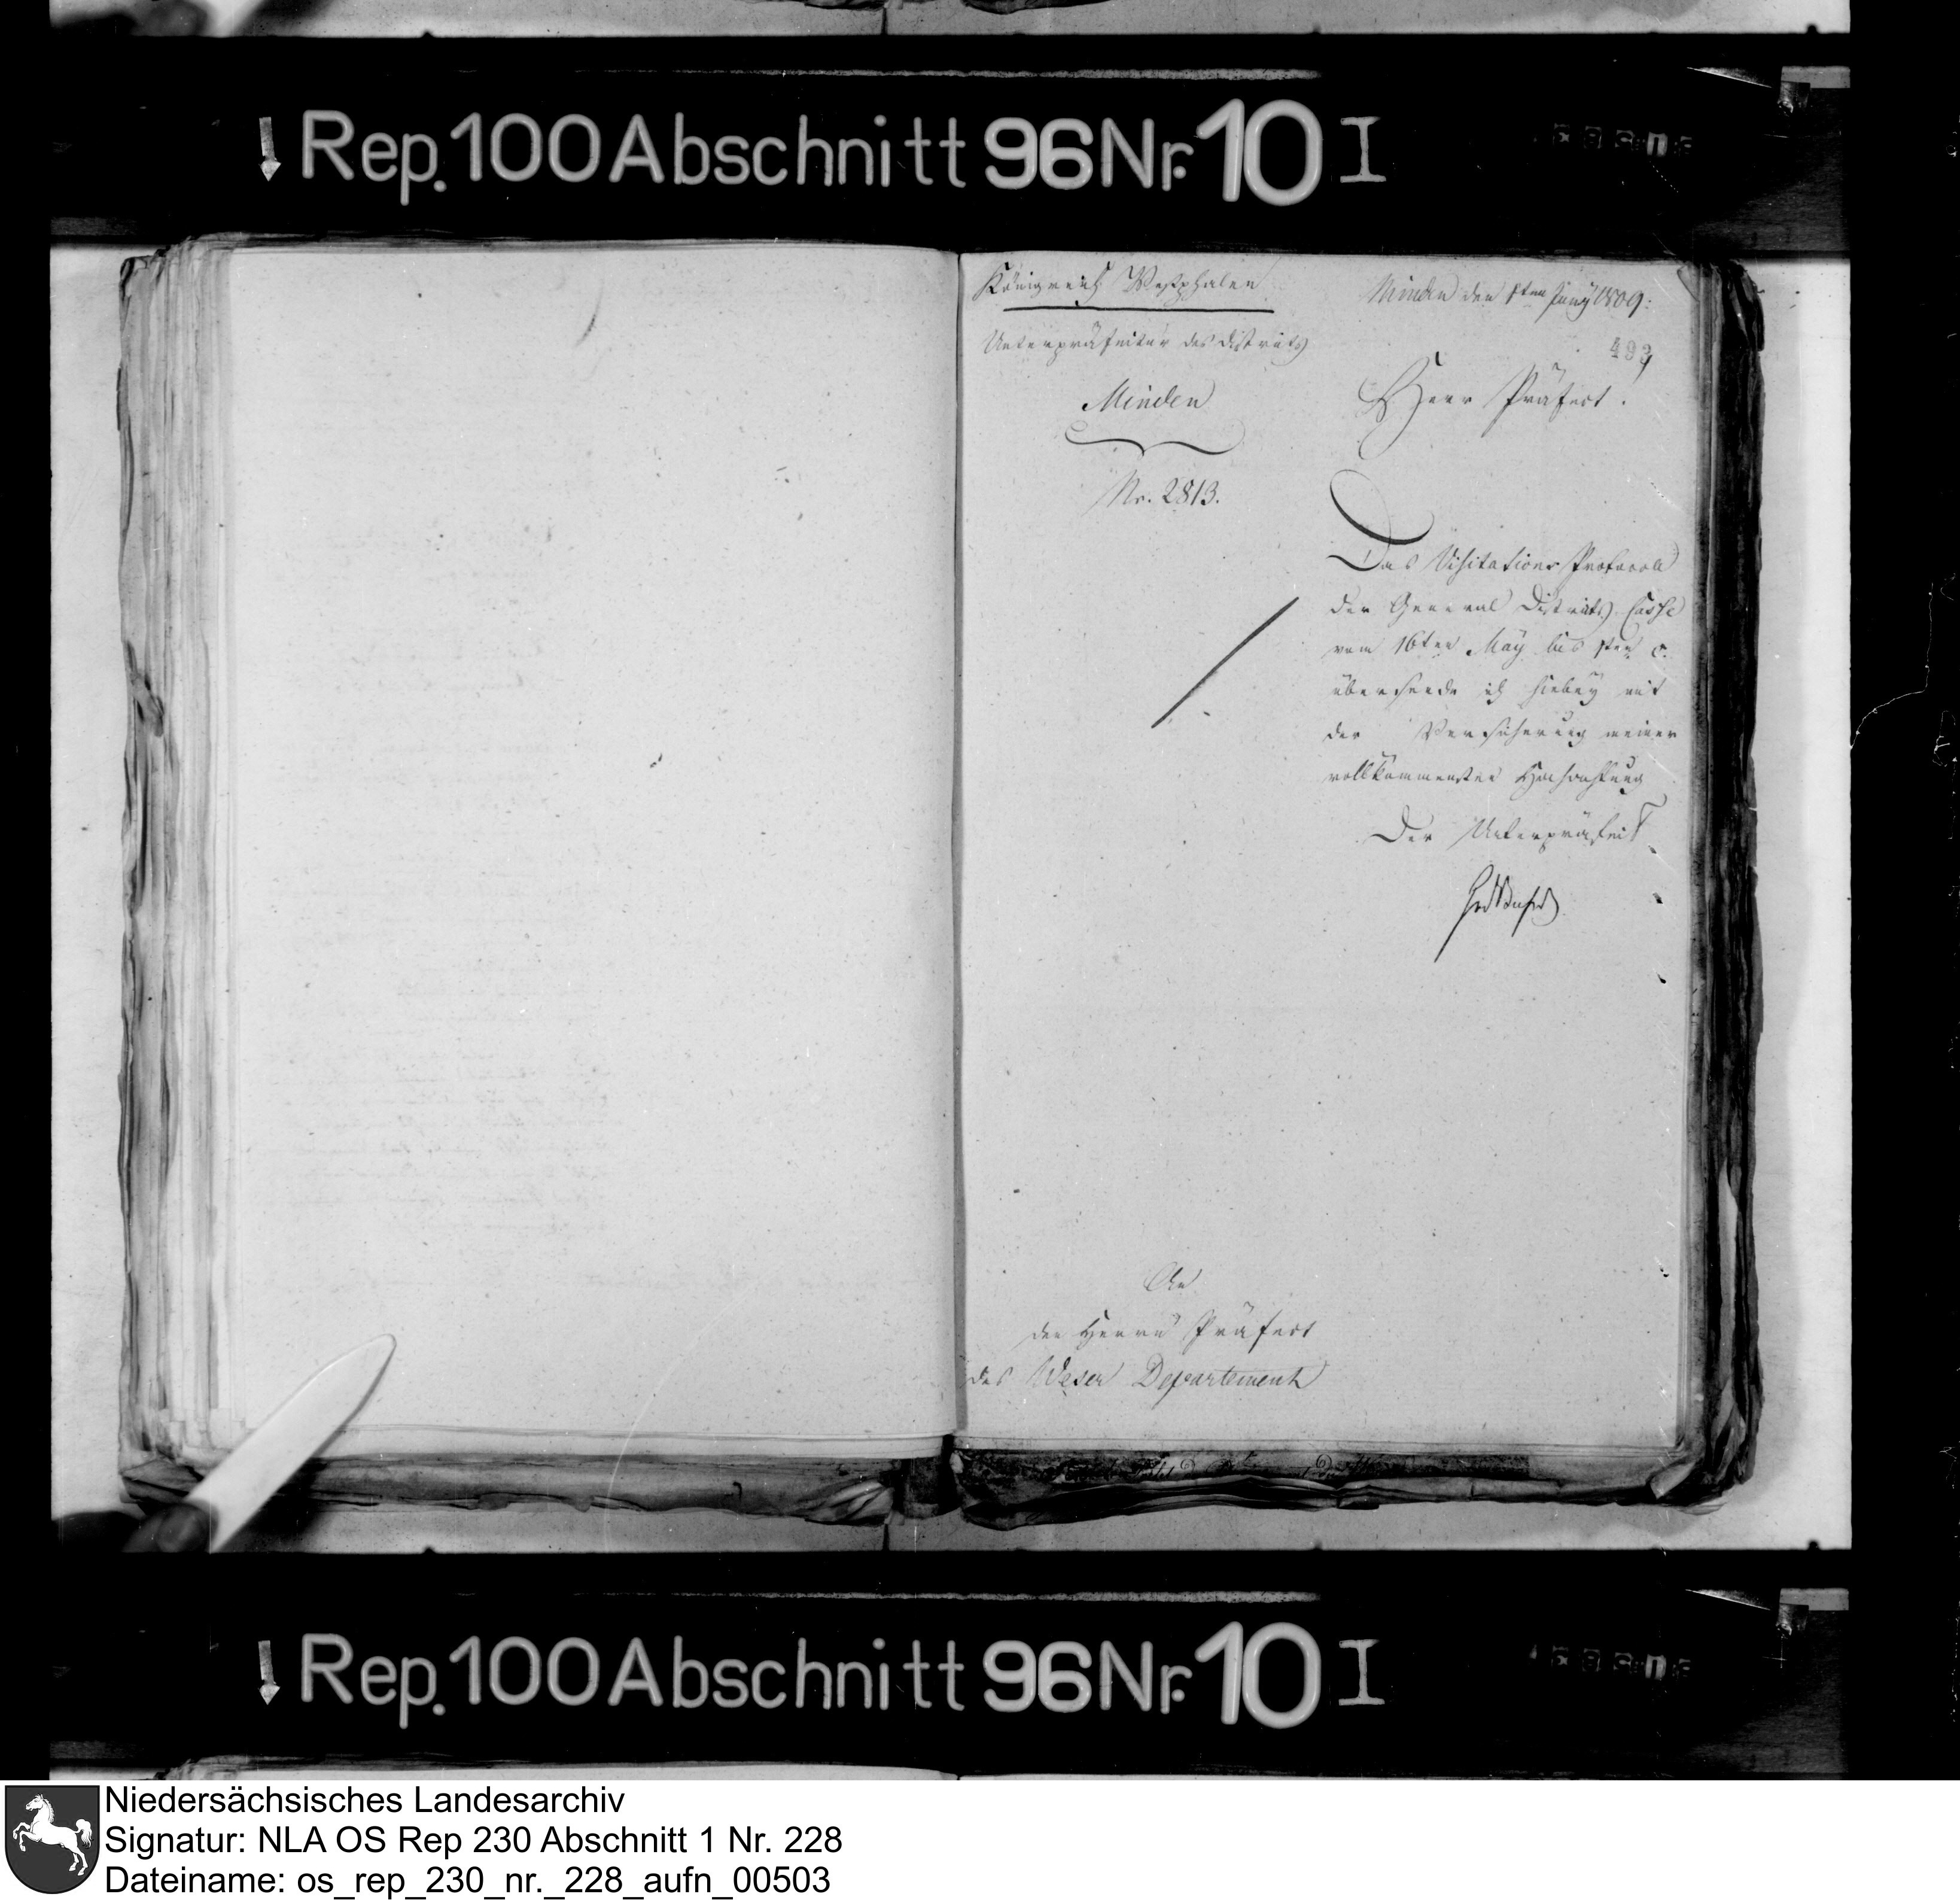 Rep. 100 Abschnitt 96 Nr. 10 I
Königreich Westphalen
Unterpräfectur des Districts
Minden
Nr. 2813.
Minden den Juny 1809.
493
Herr Präfect.
Das Visitations Protocoll
der General Districts Casse
vom 16ten May bis c.
übersende ich hiebey mit
der Versicherung meiner
vollkommensten Hochachtung
Der Unterpräfect
An
den Herrn Präfect
des Weser Departements
Rep. 100 Abschnitt 96 Nr. 10 I
Niedersächsisches Landesarchiv
Signatur: NLA OS Rep 230 Abschnitt 1 Nr. 228
Dateiname: os_rep_230_nr._228_aufn_00503